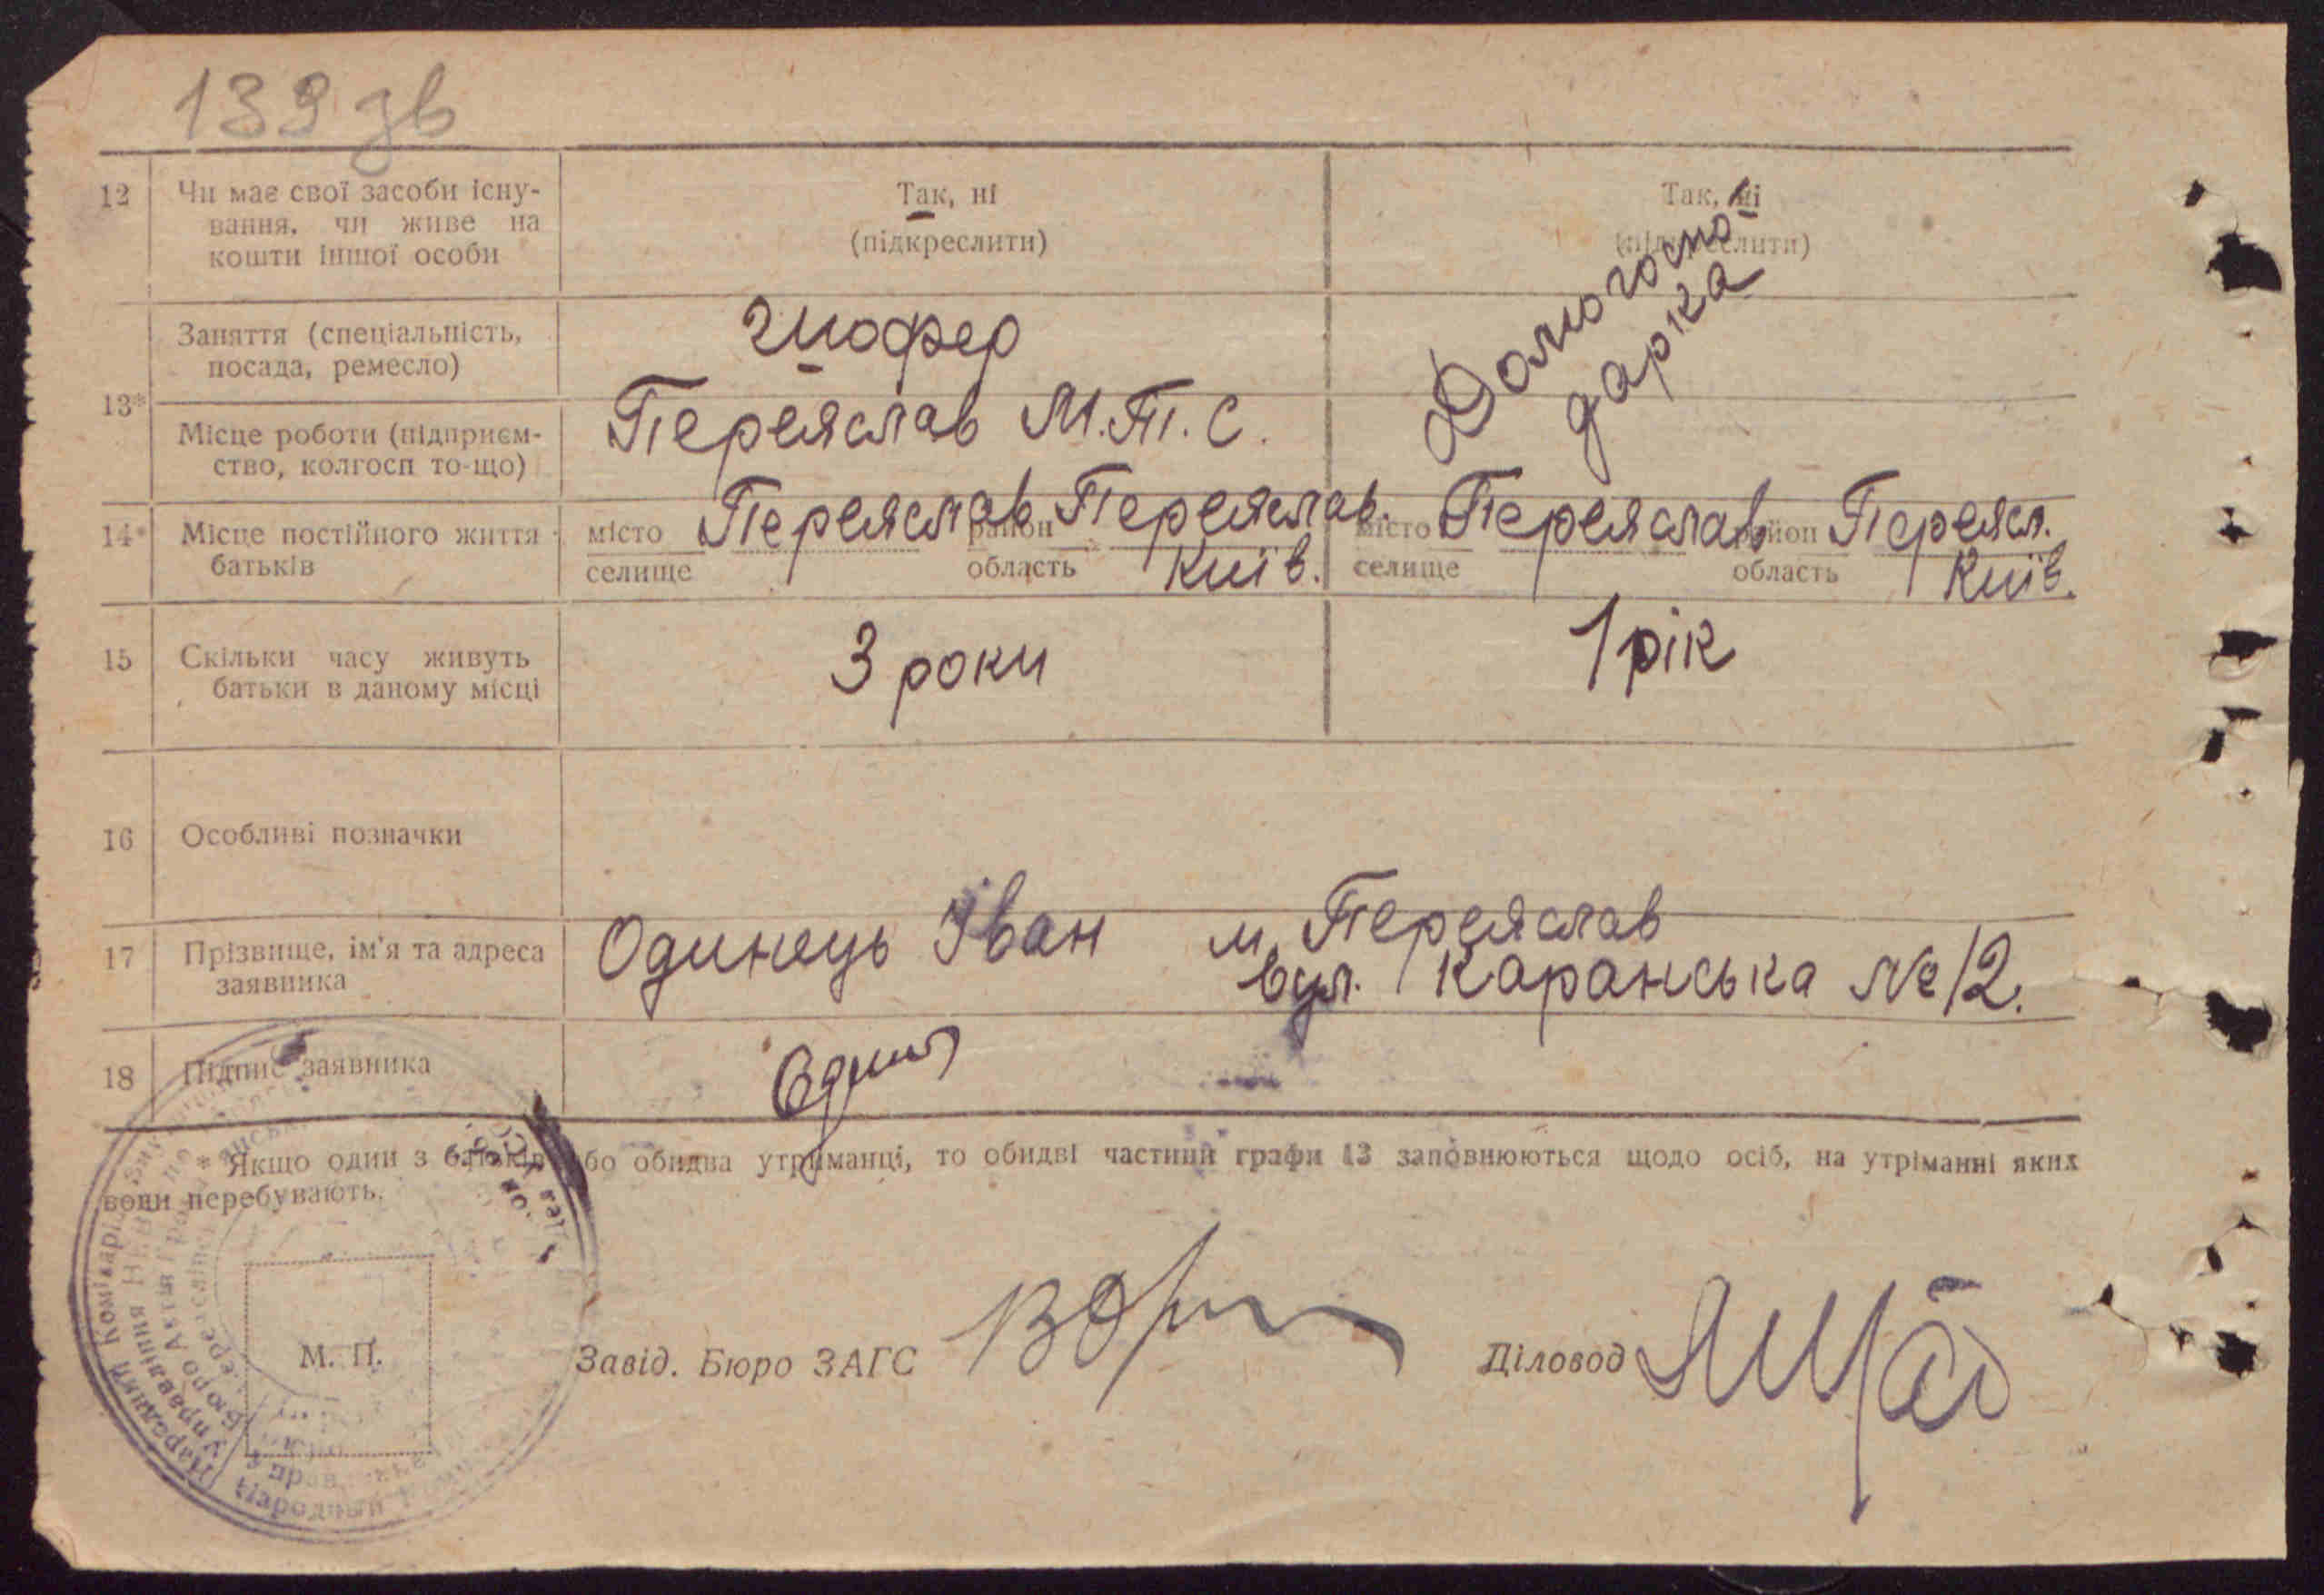 139 зв
12 Чи має свої засоби існу- Так, ні Так, ні
вання, чи живе на (підкреслити) (підкреслити)
кошти іншої особи
Заняття (спеціальність, шофер Домогоспо
посада, ремесло) дарка
13*
Місце роботи (підприєм- Переяслав М.Т.С.
ство, колгосп то-що)
14* Місце постійного життя місто Переяслав район Переяслав. місто Переяслав район Переясл.
батьків селище область Київ. селище область Київ.
15 Скільки часу живуть 3 роки 1 рік
батьки в даному місці
16 Особливі позначки
17 Прізвище, ім'я та адреса Одинець Іван м. Переяслав
заявника вул. Каранська №12.
18 Підпис заявника
Якщо один з батьків або обидва утриманці, то обидві частини графи 13 заповнюються щодо осіб, на утріманні яких
вони перебувають.
М. П.
Завід. Бюро ЗАГС Діловод